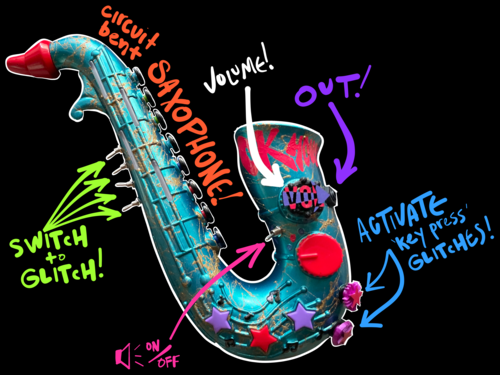 circuit
bent
SAXOPHONE!
VOLUME!
OUT!
SWITCH
to
GLITCH!
ACTIVATE
'key press'
GLITCHES!
ON/
OFF